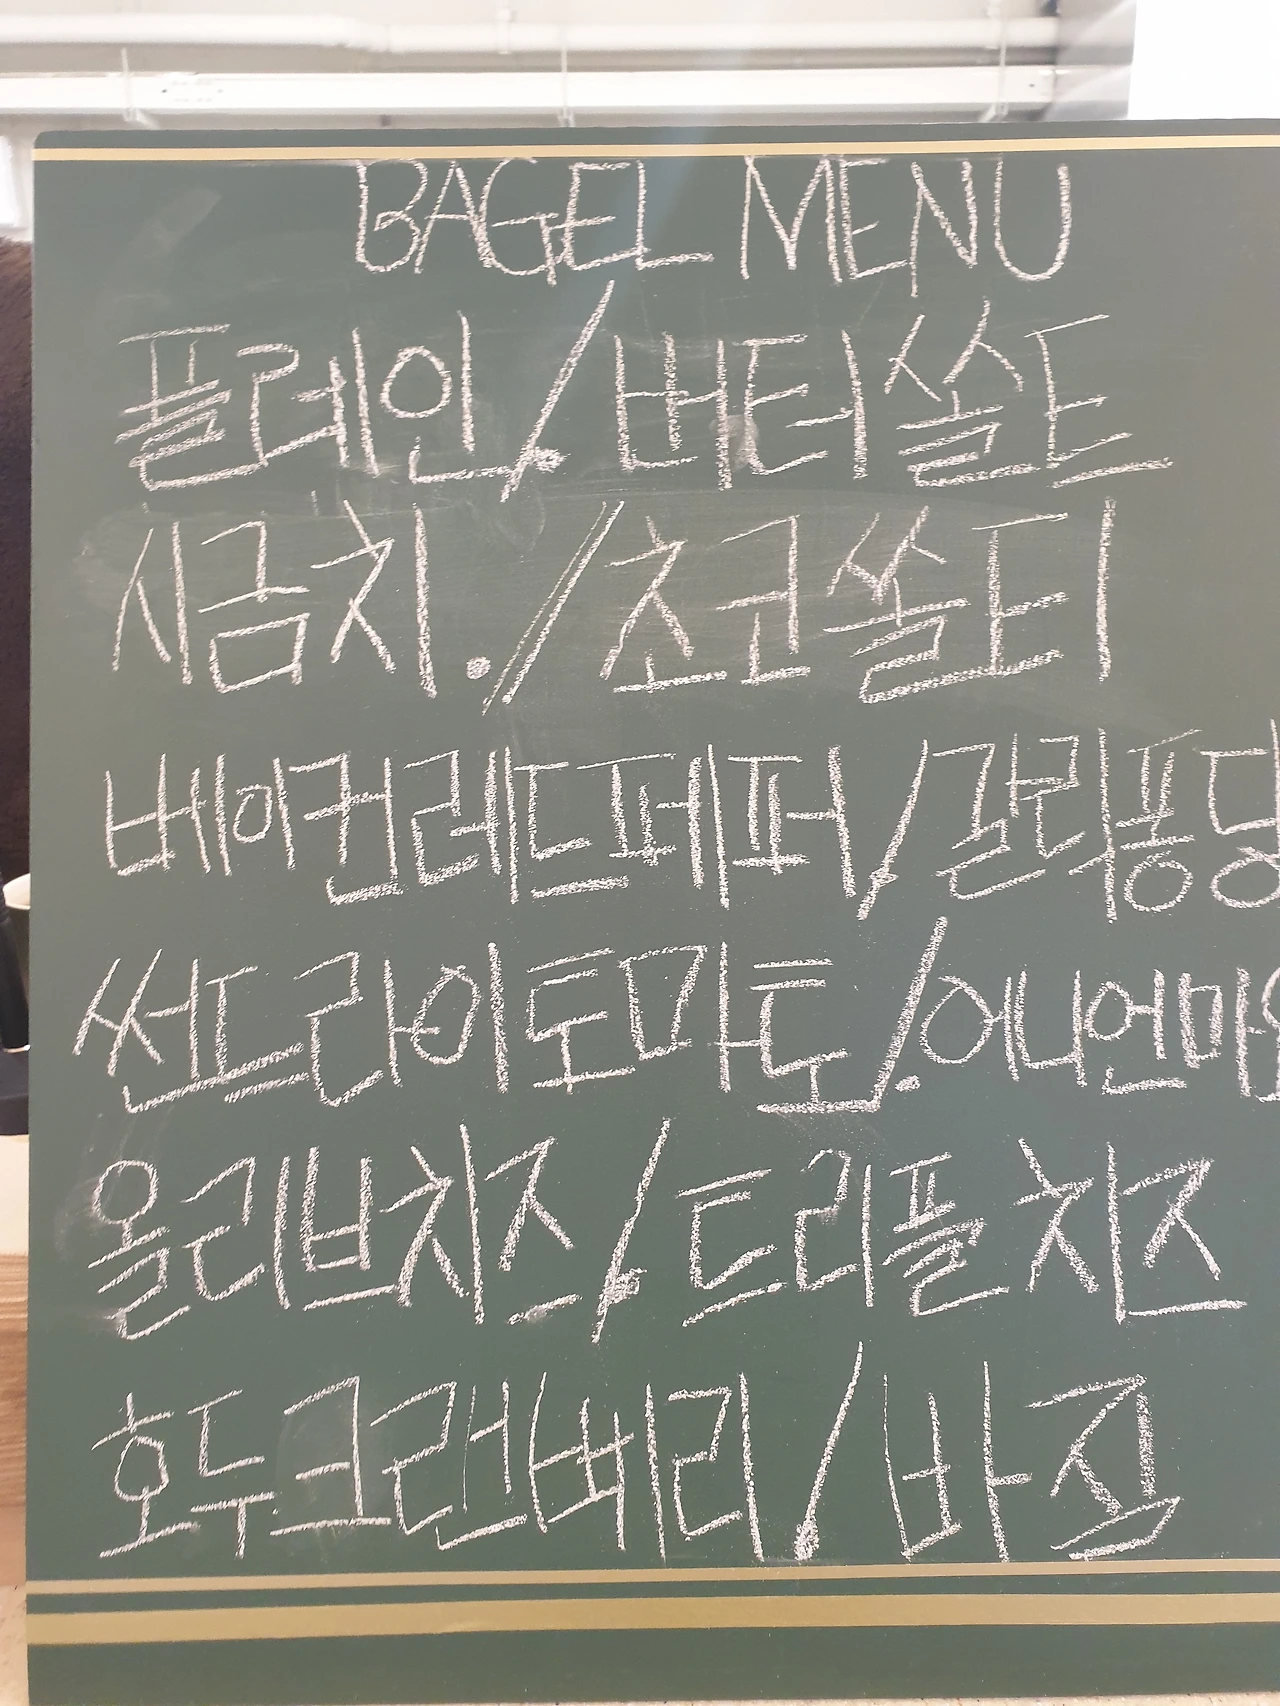 BAGEL MENU
플레인./버터쏠트
시금치./초코쏠티
베이컨레드페퍼/갈릭퐁당
썬드라이토마토/.어니언마요
올리브치즈/.트리플치즈
호두크랜베리/바질